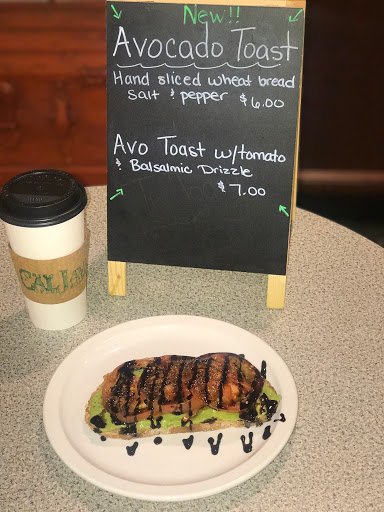 New!!
Avocado Toast
Hand sliced wheat bread
salt & pepper $6.00
Avo Toast w/tomato
& Balsalmic Drizzle
$7.00